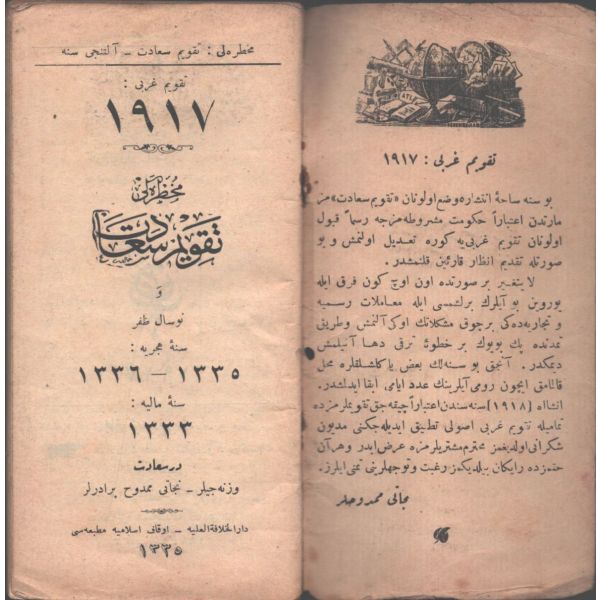 محطره‌لی : تقویم سعادت ــ آلتنجی سنه
تقویم غربی :
١٩١٧
محطره‌لی
تقویم سعادت
و
نوسال ظفر
سنهٔ هجریه :
١٣٣٥ – ١٣٣٦
سنهٔ مالیه :
١٣٣٣
درسعادت
وزنه‌جیلر ــ نجاتی ممدوح برادرلر
دار الخلافة العلیه ــ اوقافی اسلامیه مطبعه‌سی
١٣٣٥
تقویم غربی : ١٩١٧
بو سنه ساحهٔ انتشاره وضع اولونان «تقویم سعادت» مز
مارتدن اعتباراً حکومت مشروطه‌مزجه رسماً قبول
اولونان تقویم غربی‌یه کوره تعدیل اولنمش و بو
صورتله تقدیم انظار قارئین قلنمشدر.
لایتغیر بر صورتده اون اوچ کون فرق ایله
یوروین بو آیلرك برلشمسی ایله معاملات رسمیه
و تجاریه‌ده‌کی برچوق مشکلاتك اوکی آلنمش وطریق
تمدنده پك بویوك بر خطوهٔ ترقی دها آتیلمش
دیمکدر. آنجق بو سنه‌لك بعض یا کلشلقلره محل
قالمامق ایچون رومی آیلرینك عدد ایامی ابقا ایدلشدر.
انشاالله [١٩١٨] سنه‌سندن اعتباراً چیقه‌جق تقویملرمزده
تمامیله تقویم غربی اصولی تطبیق ایدیله‌جکنی مدیون
شکرانی اولدیغمز محترم مشتریلرمزه عرض ایدر و هر آن
حقمزده رایکان بیلدیکمز رغبت و توجهلرینی تمنی ایلرز.
نجاتی ممدوحلر